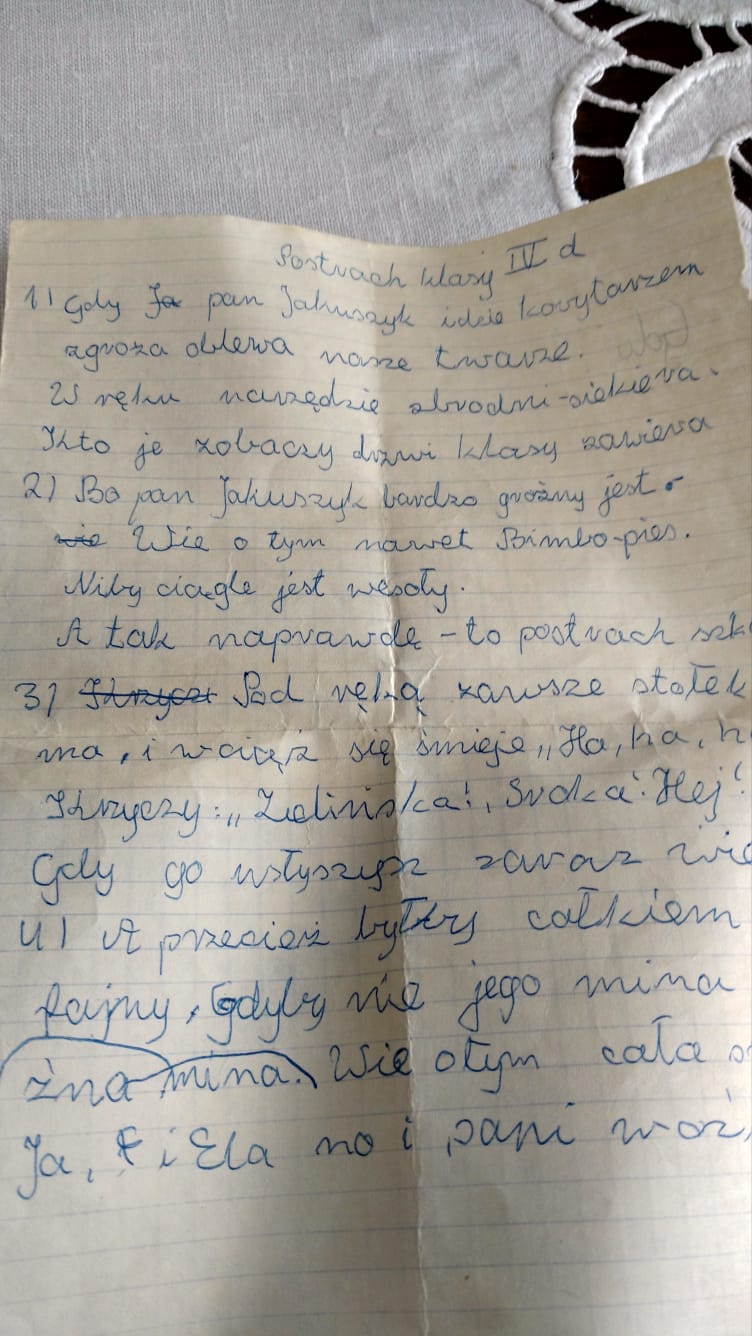 Postrach klasy IV d
1) Gdy Ja pan Jakuszyk idzie korytarzem
zgroza oblewa nasze twarze.
W ręku narzędzie zbrodni-siekiera.
Kto je zobaczy drzwi klasy zawiera
2) Bo pan Jakuszyk bardzo groźny jest
wie Wie o tym nawet Bimbo-pies.
Niby ciągle jest wesoły.
A tak naprawdę - to postrach szk
3) Krzycz Pod ręką zawsze stołek
ma, i wciąż się śmieje „Ha, ha, h
Krzyczy: „Zielińska!, Sroka! Hej!
Gdy go usłyszysz zaraz wie
4) A przecież byłby całkiem
fajny, Gdyby nie jego mina
źna mina. Wie o tym cała
Ja, i Ela no i pani woź